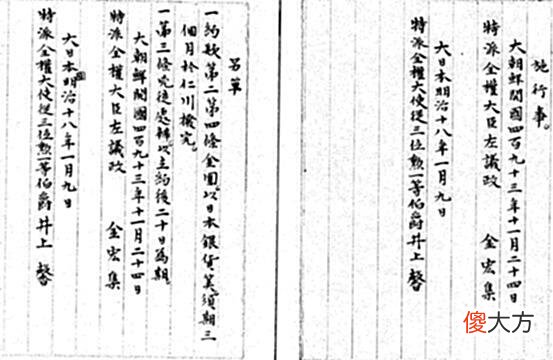 施行事
大朝鮮開國四百九十三年十一月二十四日
特派全權大臣左議政 金宏集
大日本明治十八年一月九日
特派全權大使從三位勳一等伯爵井上馨
另單
一約款第二第四條金圓以日本銀貨算須期三
個月於仁川撥完
一第三條兇徒處辦以立約後二十日為期
大朝鮮開國四百九十三年十一月二十四日
特派全權大臣左議政 金宏集
大日本明治十八年一月九日
特派全權大使從三位勳一等伯爵井上馨
傻大方